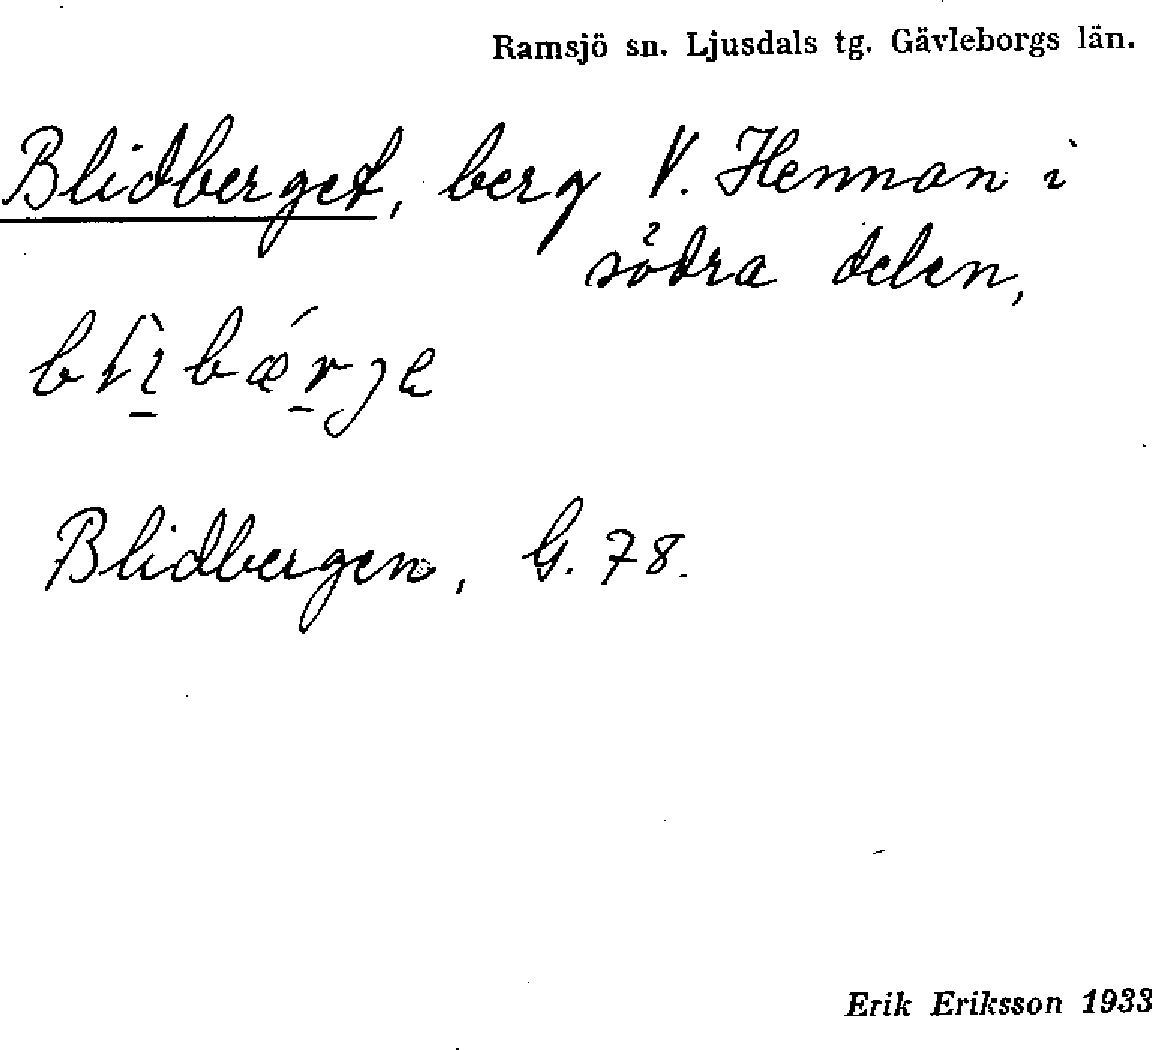 Ramsjö sn. Ljusdals tg. Gävleborgs län.
Blidberget, berg V. Hennan i
södra delen,
Blidbergen, G. 78.
Erik Eriksson 1933